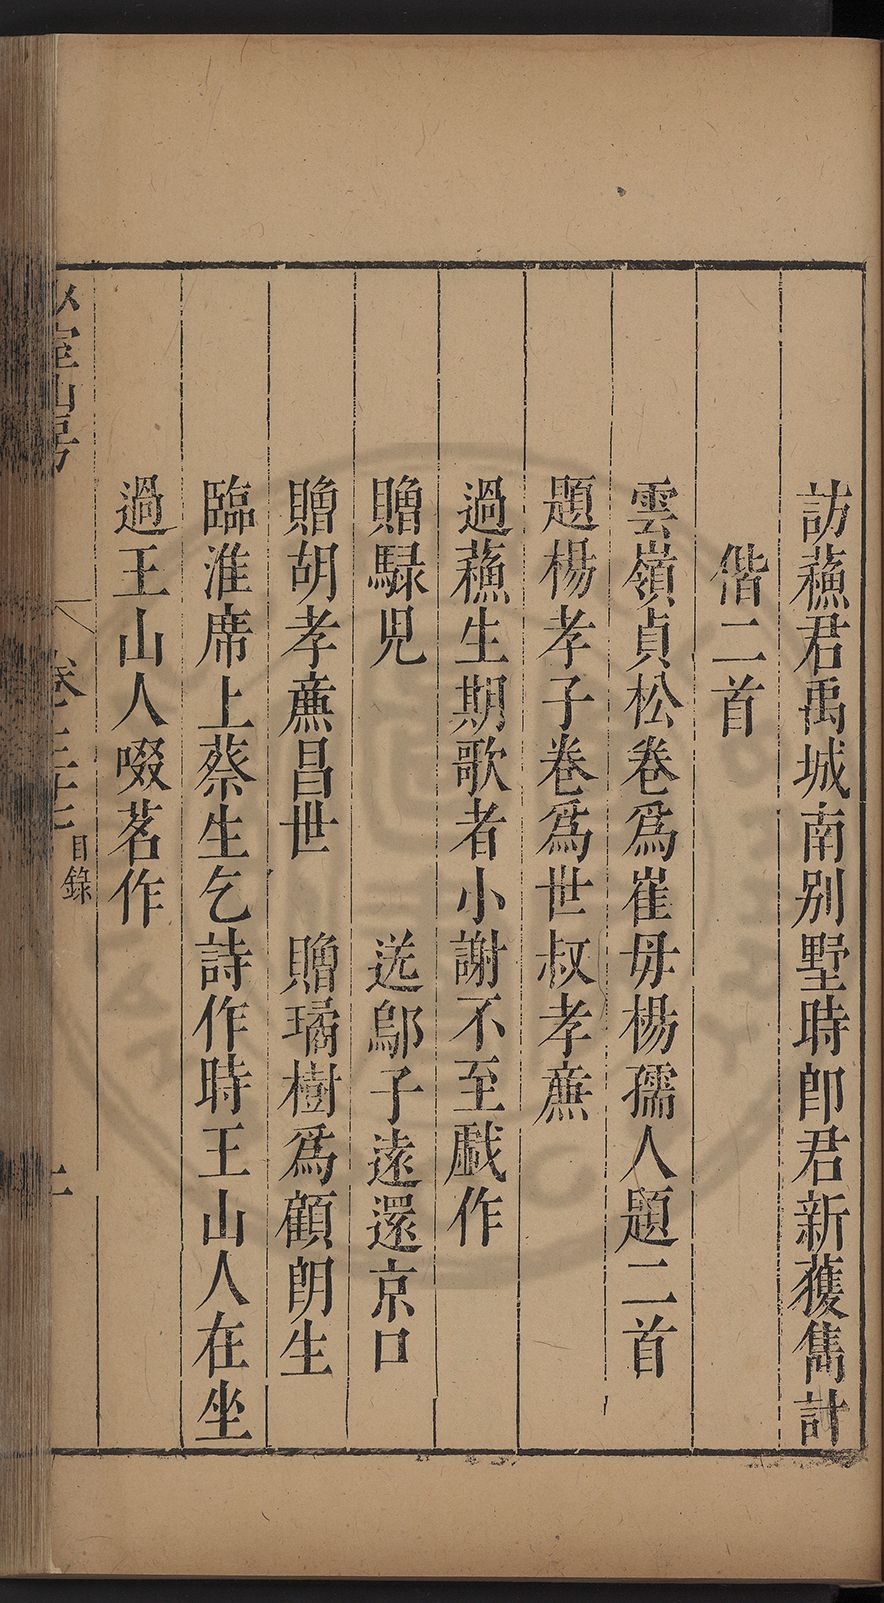 訪蘓君禹城南別墅時郎君新獲雋計
偕二首
雲嶺貞松卷爲崔毋楊孺人題二首
題楊孝子卷爲世叔孝亷
過蘓生期歌者小謝不至戱作
贈騄児　送鄔子遠還京口
贈胡孝亷昌世　贈璚樹爲顧朗生
臨淮席上蔡生乞詩作時王山人在坐
過王山人啜茗作
室山房
卷三十七 目錄